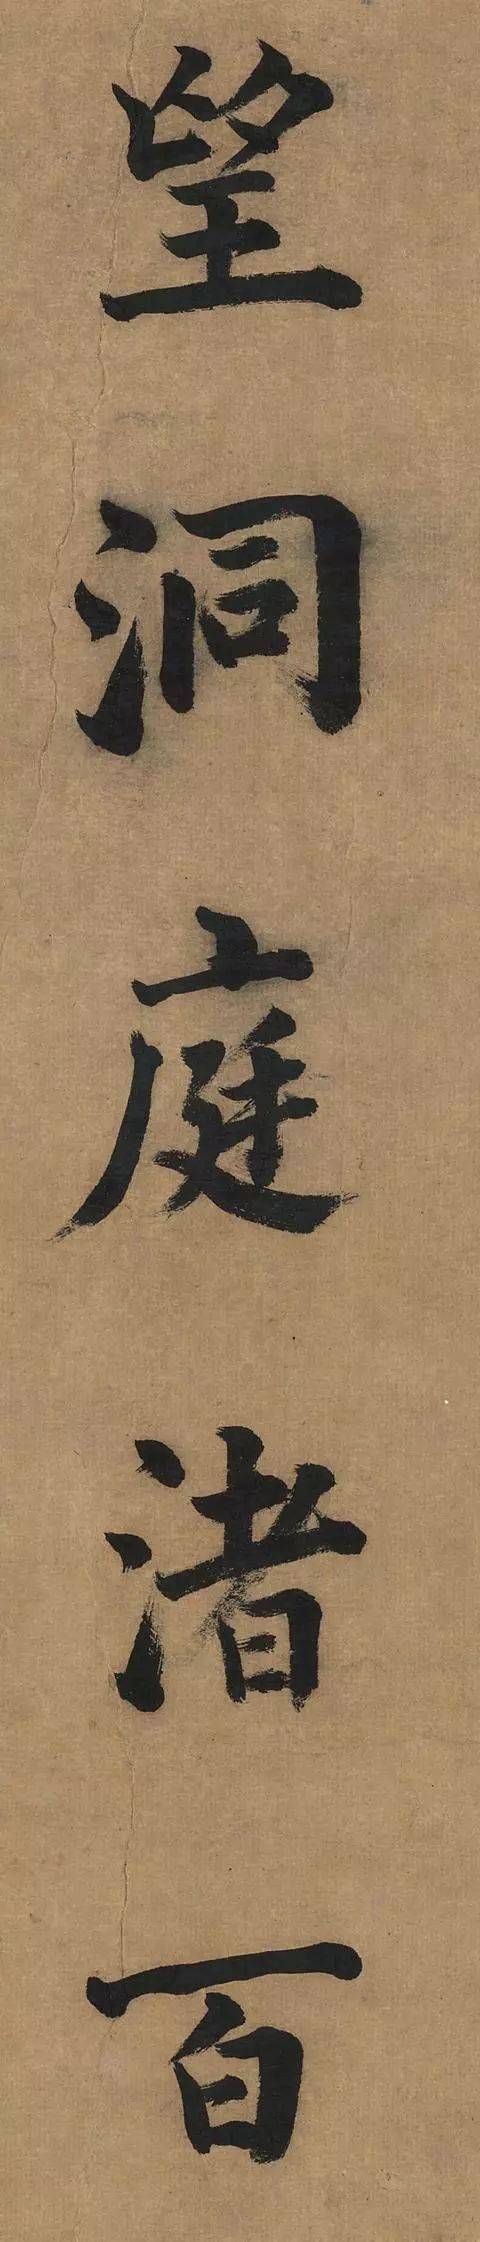 望洞庭渚百